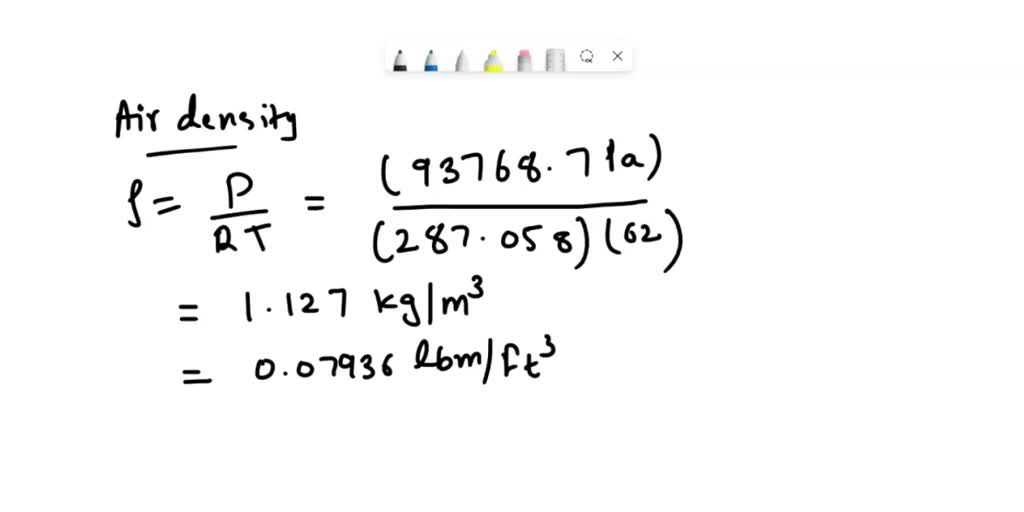 Air density
ρ = P/RT = (93768.7 Pa)/(287.058)(62)
= 1.127 kg/m³
= 0.07936 lbm/ft³